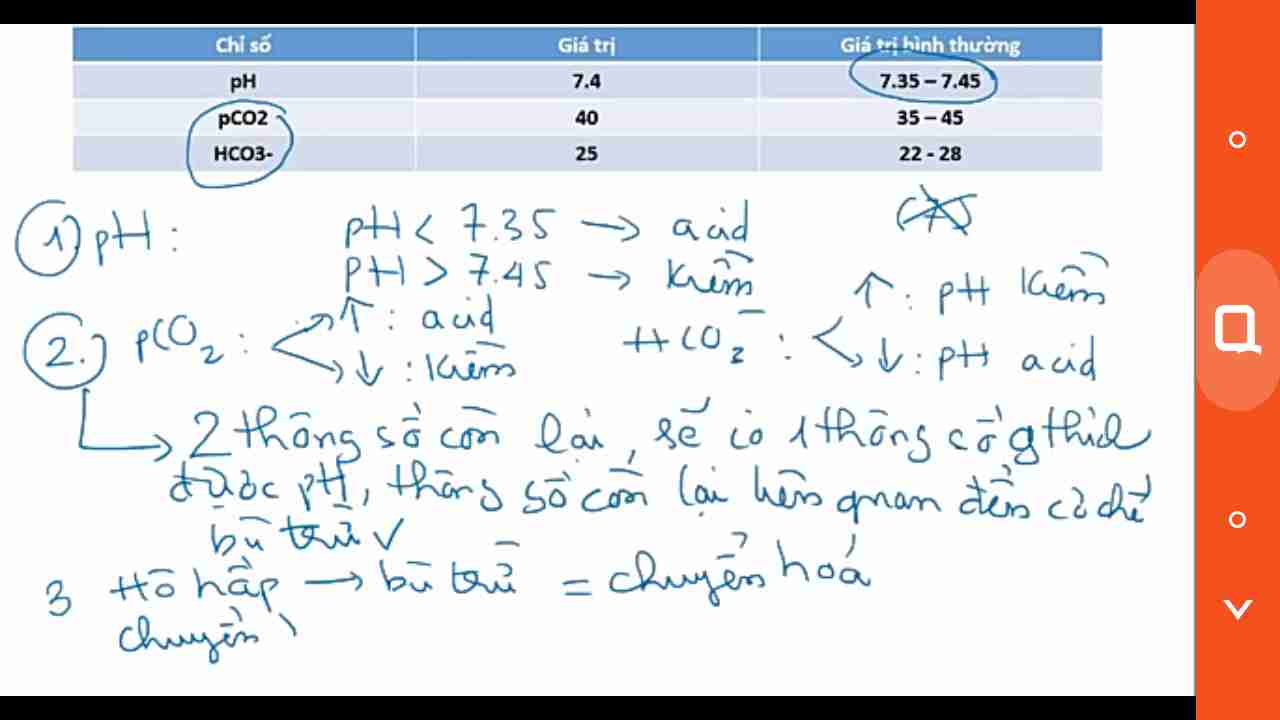 Chỉ số Giá trị Giá trị bình thường
pH 7.4 7.35 – 7.45
pCO2 40 35 – 45
HCO3- 25 22 - 28
1) pH : pH < 7.35 → acid
pH > 7.45 → Kiềm
2.) pCO2 : ↑ : acid
↓ : Kiềm
HCO2⁻ : ↑ : pH Kiềm
↓ : pH acid
→ 2 thông số còn lại, sẽ có 1 thông số gthích
được pH, thông số còn lại liên quan đến cơ chế
bù trừ ✓
3 Hô hấp → bù trừ = chuyển hoá
chuyển